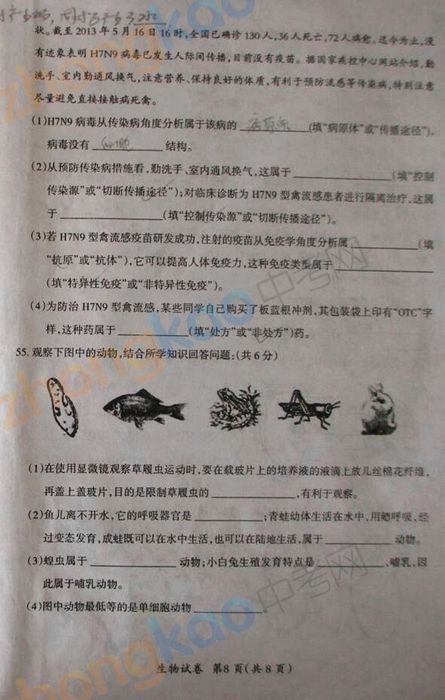 状。截至2013年5月16日16时,全国已确诊130人,36人死亡,72人痊愈。迄今为止,没
有迹象表明H7N9病毒已发生人际间传播,目前没有疫苗。据国家疾控中心网站介绍,勤
洗手、室内勤通风换气,注意营养、保持良好的体质,有利于预防流感等传染病,特别注意
尽量避免直接接触病死禽。
(1)H7N9病毒从传染病角度分析属于该病的 病原体 (填“病原体”或“传播途径”)。
病毒没有 细胞 结构。
(2)从预防传染病措施看,勤洗手、室内通风换气,这属于____________(填“控制
传染源”或“切断传播途径”);对临床诊断为H7N9型禽流感患者进行隔离治疗,这属
于____________(填“控制传染源”或“切断传播途径”)。
(3)若H7N9型禽流感疫苗研发成功,注射的疫苗从免疫学角度分析属____________(填
“抗原”或“抗体”),它可以提高人体免疫力,这种免疫类型属于____________
(填“特异性免疫”或“非特异性免疫”)。
(4)为防治H7N9型禽流感,某些同学自己购买了板蓝根冲剂,其包装袋上印有“OTC”字
样,这种药属于____________(填“处方”或“非处方”)药。
55.观察下图中的动物,结合所学知识回答问题:(共6分)
(1)在使用显微镜观察草履虫运动时,要在载玻片上的培养液的液滴上放几丝棉花纤维,
再盖上盖玻片,目的是限制草履虫的____________,有利于观察。
(2)鱼儿离不开水,它的呼吸器官是____________;青蛙幼体生活在水中,用鳃呼吸,经
过变态发育,成蛙既可以在水中生活,也可以在陆地生活,属于____________动物。
(3)蝗虫属于____________动物;小白兔生殖发育特点是____________、哺乳,因
此属于哺乳动物。
(4)图中动物最低等的是单细胞动物____________
生物试卷 第8页(共8页)
zhongkao 中考网